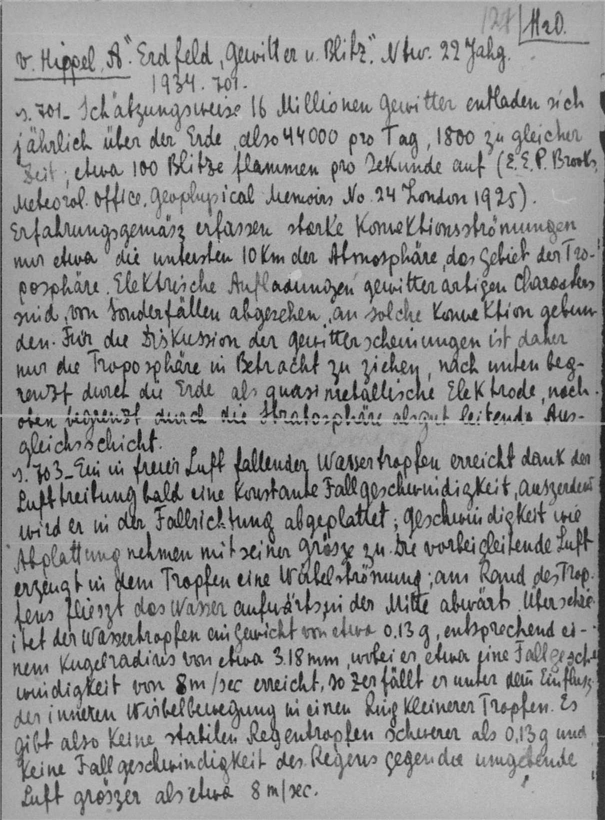 124 H2O.
v. Hippel, A. "Erdfeld, Gewitter u. Blitz". Ntw. 22 Jahg.
1934. 701.
s. 701_ Schätzungsweise 16 Millionen Gewitter entladen sich
jährlich über der Erde, also 44000 pro Tag, 1800 zu gleicher
Zeit; etwa 100 Blitze flammen pro Sekunde auf (E.E.P. Brooks,
Meteorol. Office, Geophysical Memoirs No. 24 London 1925).
Erfahrungsgemäsz erfassen starke Konvektionsströmungen
nur etwa die untersten 10 Km der Atmosphäre, das Gebiet der Tro-
posphäre. Elektrische Aufladungen gewitterartigen Charakters
sind, von Sonderfällen abgesehen, an solche Konvektion gebun-
den. Für die Diskussion der Gewitterscheinungen ist daher
nur die Troposphäre in Betracht zu ziehen, nach unten beg-
renzt durch die Erde als quasimetallische Elektrode, nach
oben begrenzt durch die Stratosphäre als gut leitende Aus-
gleichsschicht.
s. 703_ Ein in freier Luft fallender Wassertropfen erreicht dank der
Luftreibung bald eine Konstante Fallgeschwindigkeit, auszerdem
wird er in der Fallrichtung abgeplattet; Geschwindigkeit wie
Abplattung nehmen mit seiner Grösze zu. Die vorbeigleitende Luft
erzeugt in dem Tropfen eine Wirbelströmung; am Rand des Trop-
fens flieszt das Wasser aufwärts, in der Mitte abwärts. Überschre-
itet der Wassertropfen ein Gewicht von etwa 0,13 g, entsprechend ei-
nem Kugelradius von etwa 3.18 mm, wobei er etwa eine Fallgesch-
windigkeit von 8 m/sec erreicht, so zerfällt er unter dem Einflusz
der inneren Wirbelbewegung in einen Ring Kleinerer Tropfen. Es
gibt also Keine stabilen Regentropfen schwerer als 0,13 g und
Keine Fallgeschwindigkeit des Regens gegen die umgebende
Luft gröszer als etwa 8 m/sec.